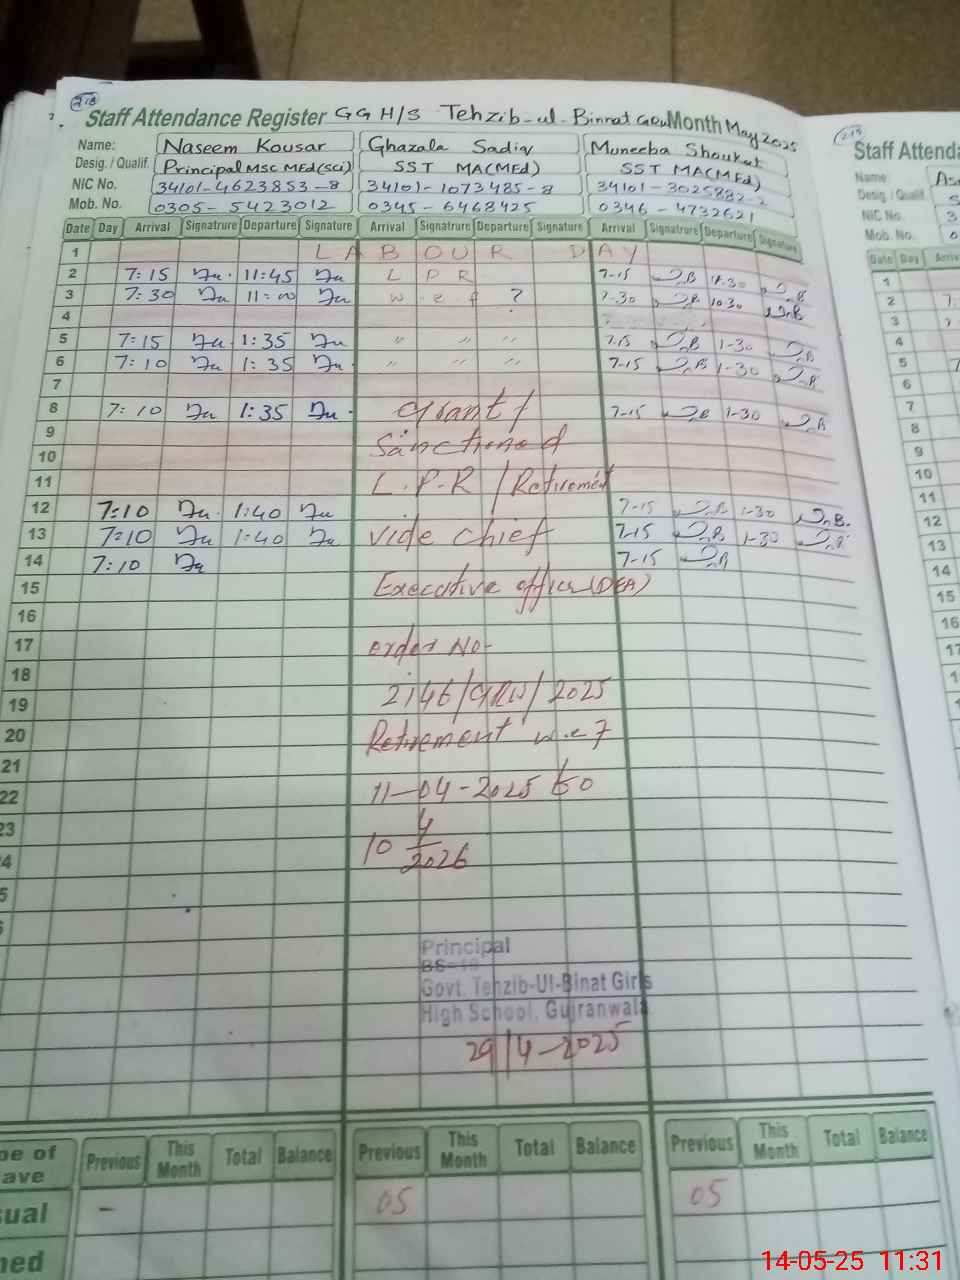 218
Staff Attendance Register GGH/S Tehzib-ul-Binnat GRW Month May 2025
Name: Naseem Kousar Ghazala Sadiq Muneeba Shoukat
Desig. / Qualif. Principal MSC MEd(Sci) SST MA(MEd) SST MA(MEd)
NIC No. 34101-4623853-8 34101-1073485-8 34101-3025882-2
Mob. No. 0305-5423012 0345-6468425 0346-4732621
Date Day Arrival Signatrure Departure Signature Arrival Signatrure Departure Signature Arrival Signatrure Departure Signature
1 LABOUR DAY
2 7:15 11:45 L P R 7-15 11-30
3 7:30 11:00 w-e-f ? 7-30 10-30
4
5 7:15 1:35 " " " 7-15 1-30
6 7:10 1:35 " " " 7-15 1-30
7
8 7:10 1:35 Grant/ 7-15 1-30
9 Sanctioned
10
11 L.P.R / Retirement
12 7:10 1:40 7-15 1-30
13 7:10 1:40 vide chief 7-15 1-30
14 7:10 7-15
15 Executive officer (DEA)
16
17 order No-
18
19 2146/GRW/2025
20 Retirement w.e.f
21
22 11-04-2025 to
23
4 10 4/2026
5
Principal
BS-19
Govt. Tehzib-Ul-Binat Girls
High School, Gujranwala
29/4-2025
pe of
ave Previous This Month Total Balance Previous This Month Total Balance Previous This Month Total Balance
sual - 05 05
ned
Staff Attenda
Name:
Desig. / Qualif
NIC No. 3
Mob. No. 0
Date Day Arriv
1
2
3
4
5
6
7
8
9
10
11
12
13
14
15
16
17
14-05-25 11:31